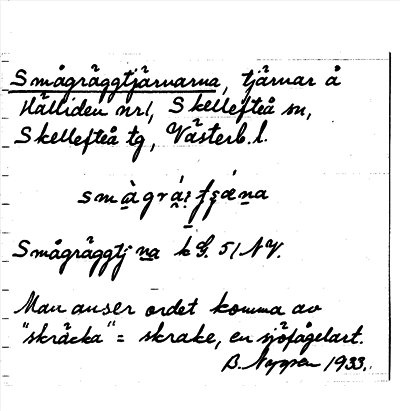 Smågräggtjärnarna, tjärnar å
Hälliden nr 1, Skellefteå sn,
Skellefteå tg, Västerb. l.
Smågräggtjna k G. 51 NV.
Man anser ordet komma av
"skräcka" = skrake, en sjöfågelart.
B. 1933.